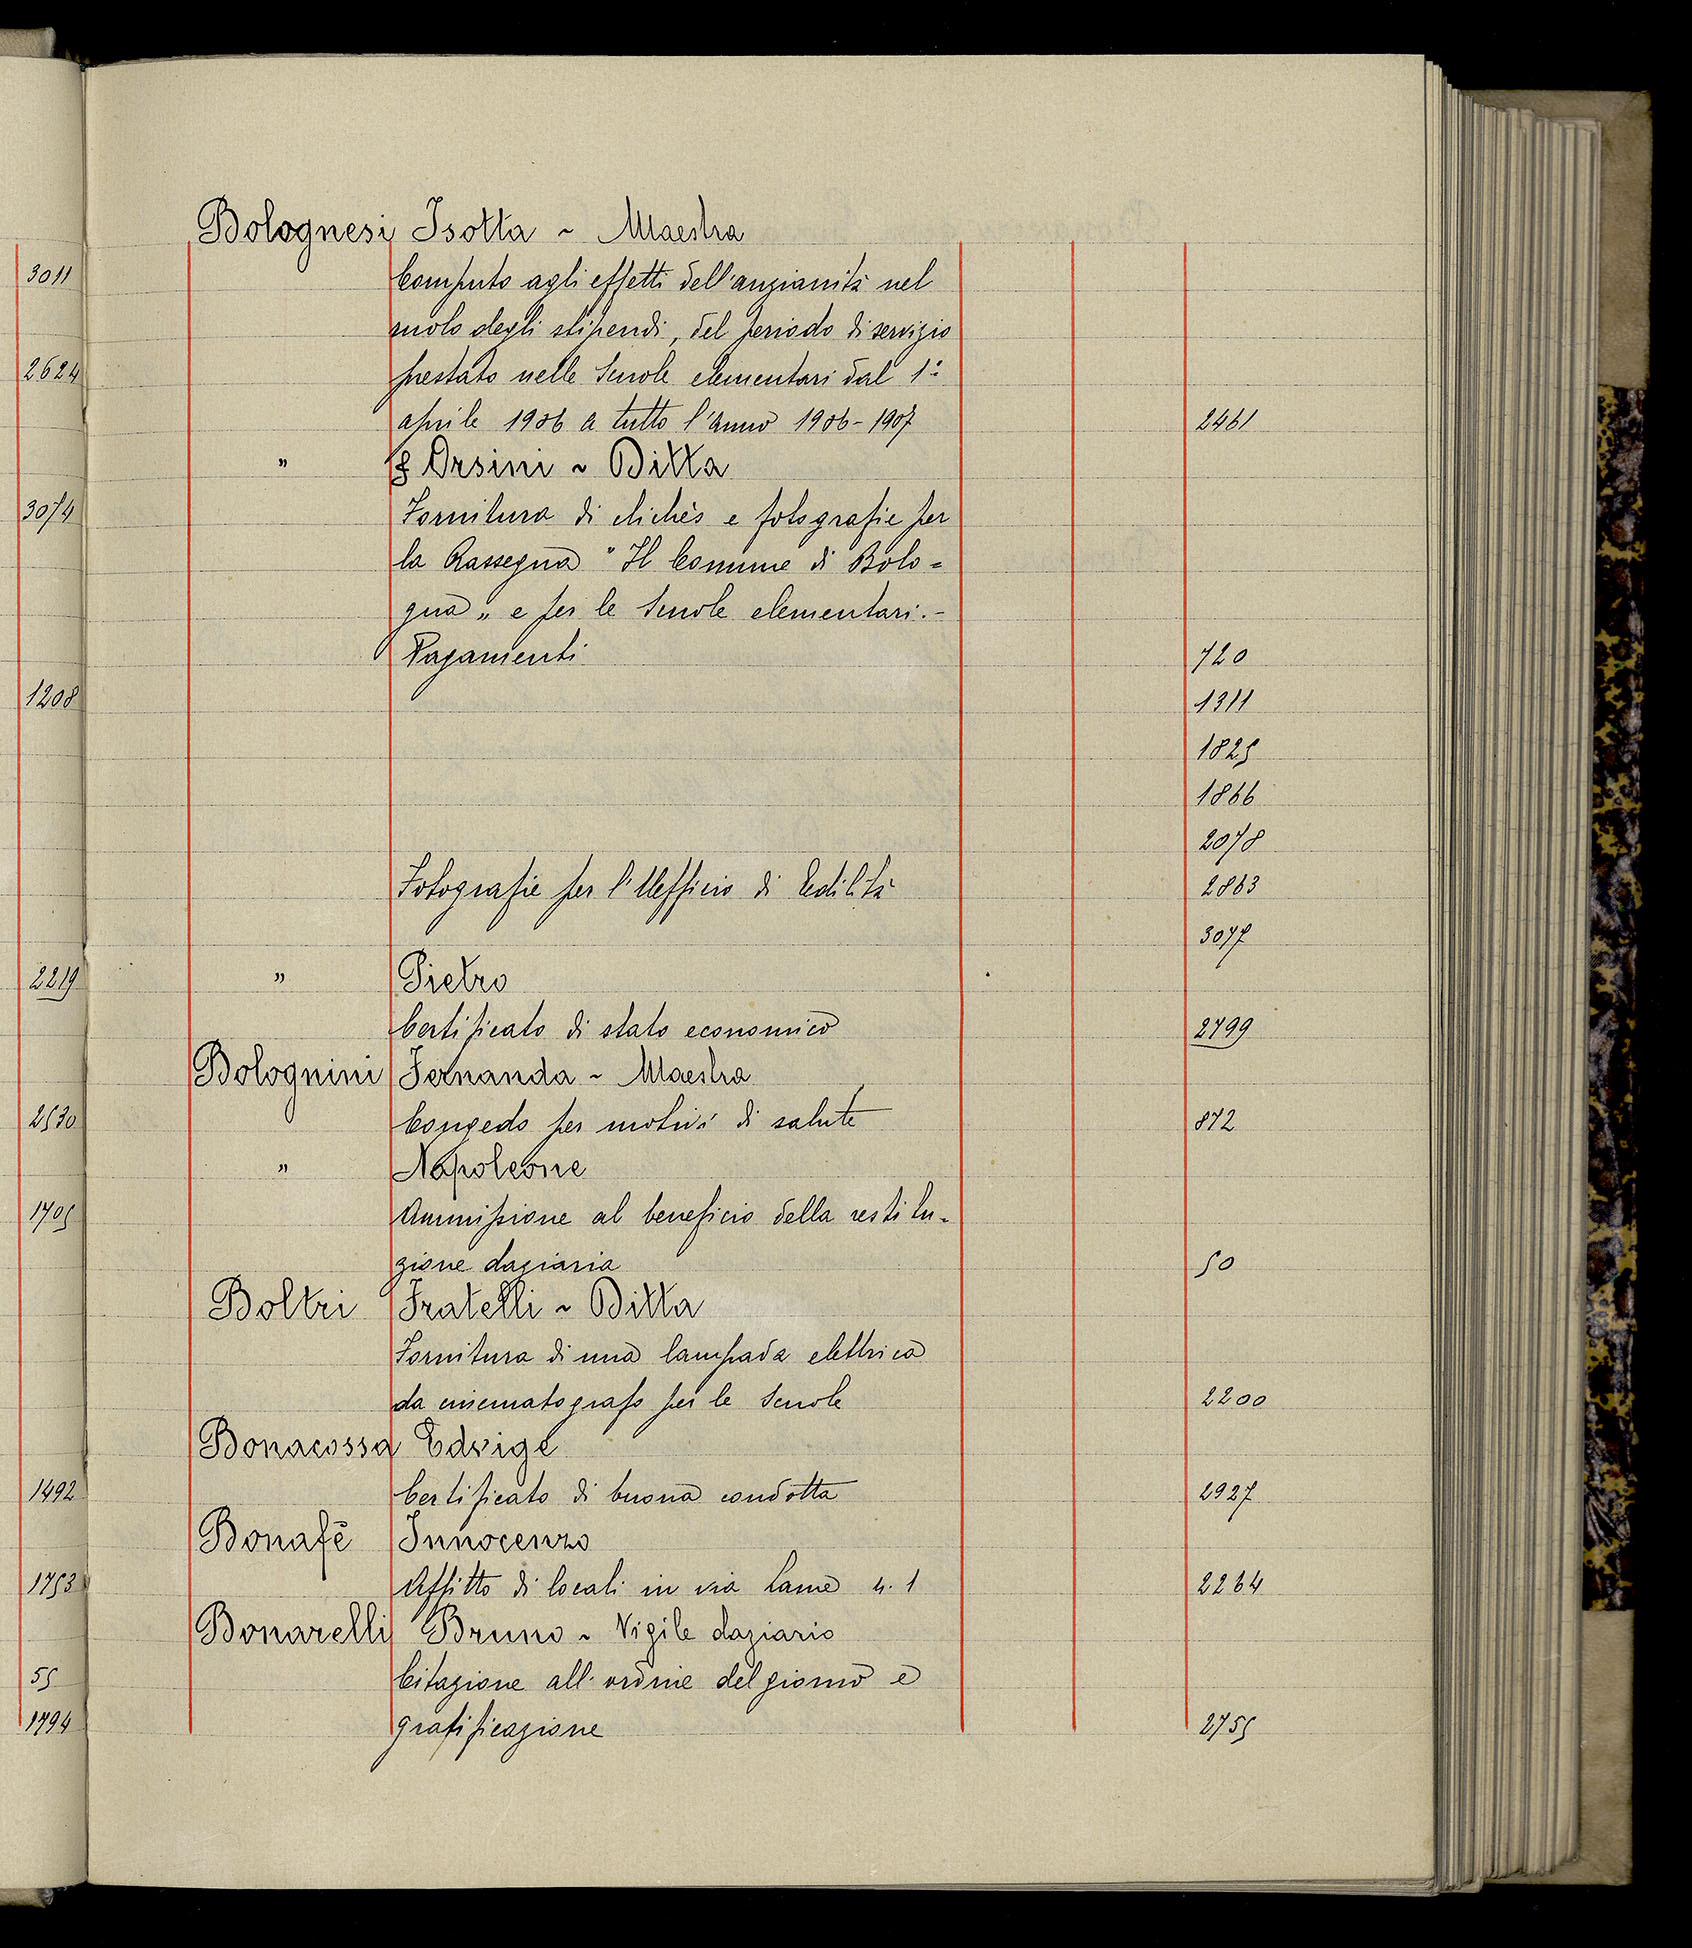 Bolognesi Isotta ~ Maestra
3011 Computo agli effetti dell'anzianità nel
ruolo degli stipendi, del periodo di servizio
2624 prestato nelle Scuole elementari dal 1º
aprile 1906 a tutto l'anno 1906-1907 2461
" & Orsini ~ Ditta
3074 Fornitura di clichès e fotografie per
la Rassegna "Il Comune di Bolo=
gna„ e per le Scuole elementari.-
Pagamenti 720
1208 1311
1825
1866
2078
Fotografie per l'Ufficio di Edilità 2863
3077
2219 " Pietro
Certificato di stato economico 2799
Bolognini Fernanda ~ Maestra
2530 Congedo per motivi di salute 872
" Napoleone
1705 Ammissione al beneficio della restitu-
zione daziaria 50
Boltri Fratelli ~ Ditta
Fornitura di una lampada elettrica
da cinematografo per le Scuole 2200
Bonacossa Edvige
1492 Certificato di buona condotta 2927
Bonafè Innocenzo
1753 Affitto di locali in via Lame n. 1 2264
Bonarelli Bruno ~ Vigile daziario
55 Citazione all'ordine del giorno e
1794 gratificazione 2755